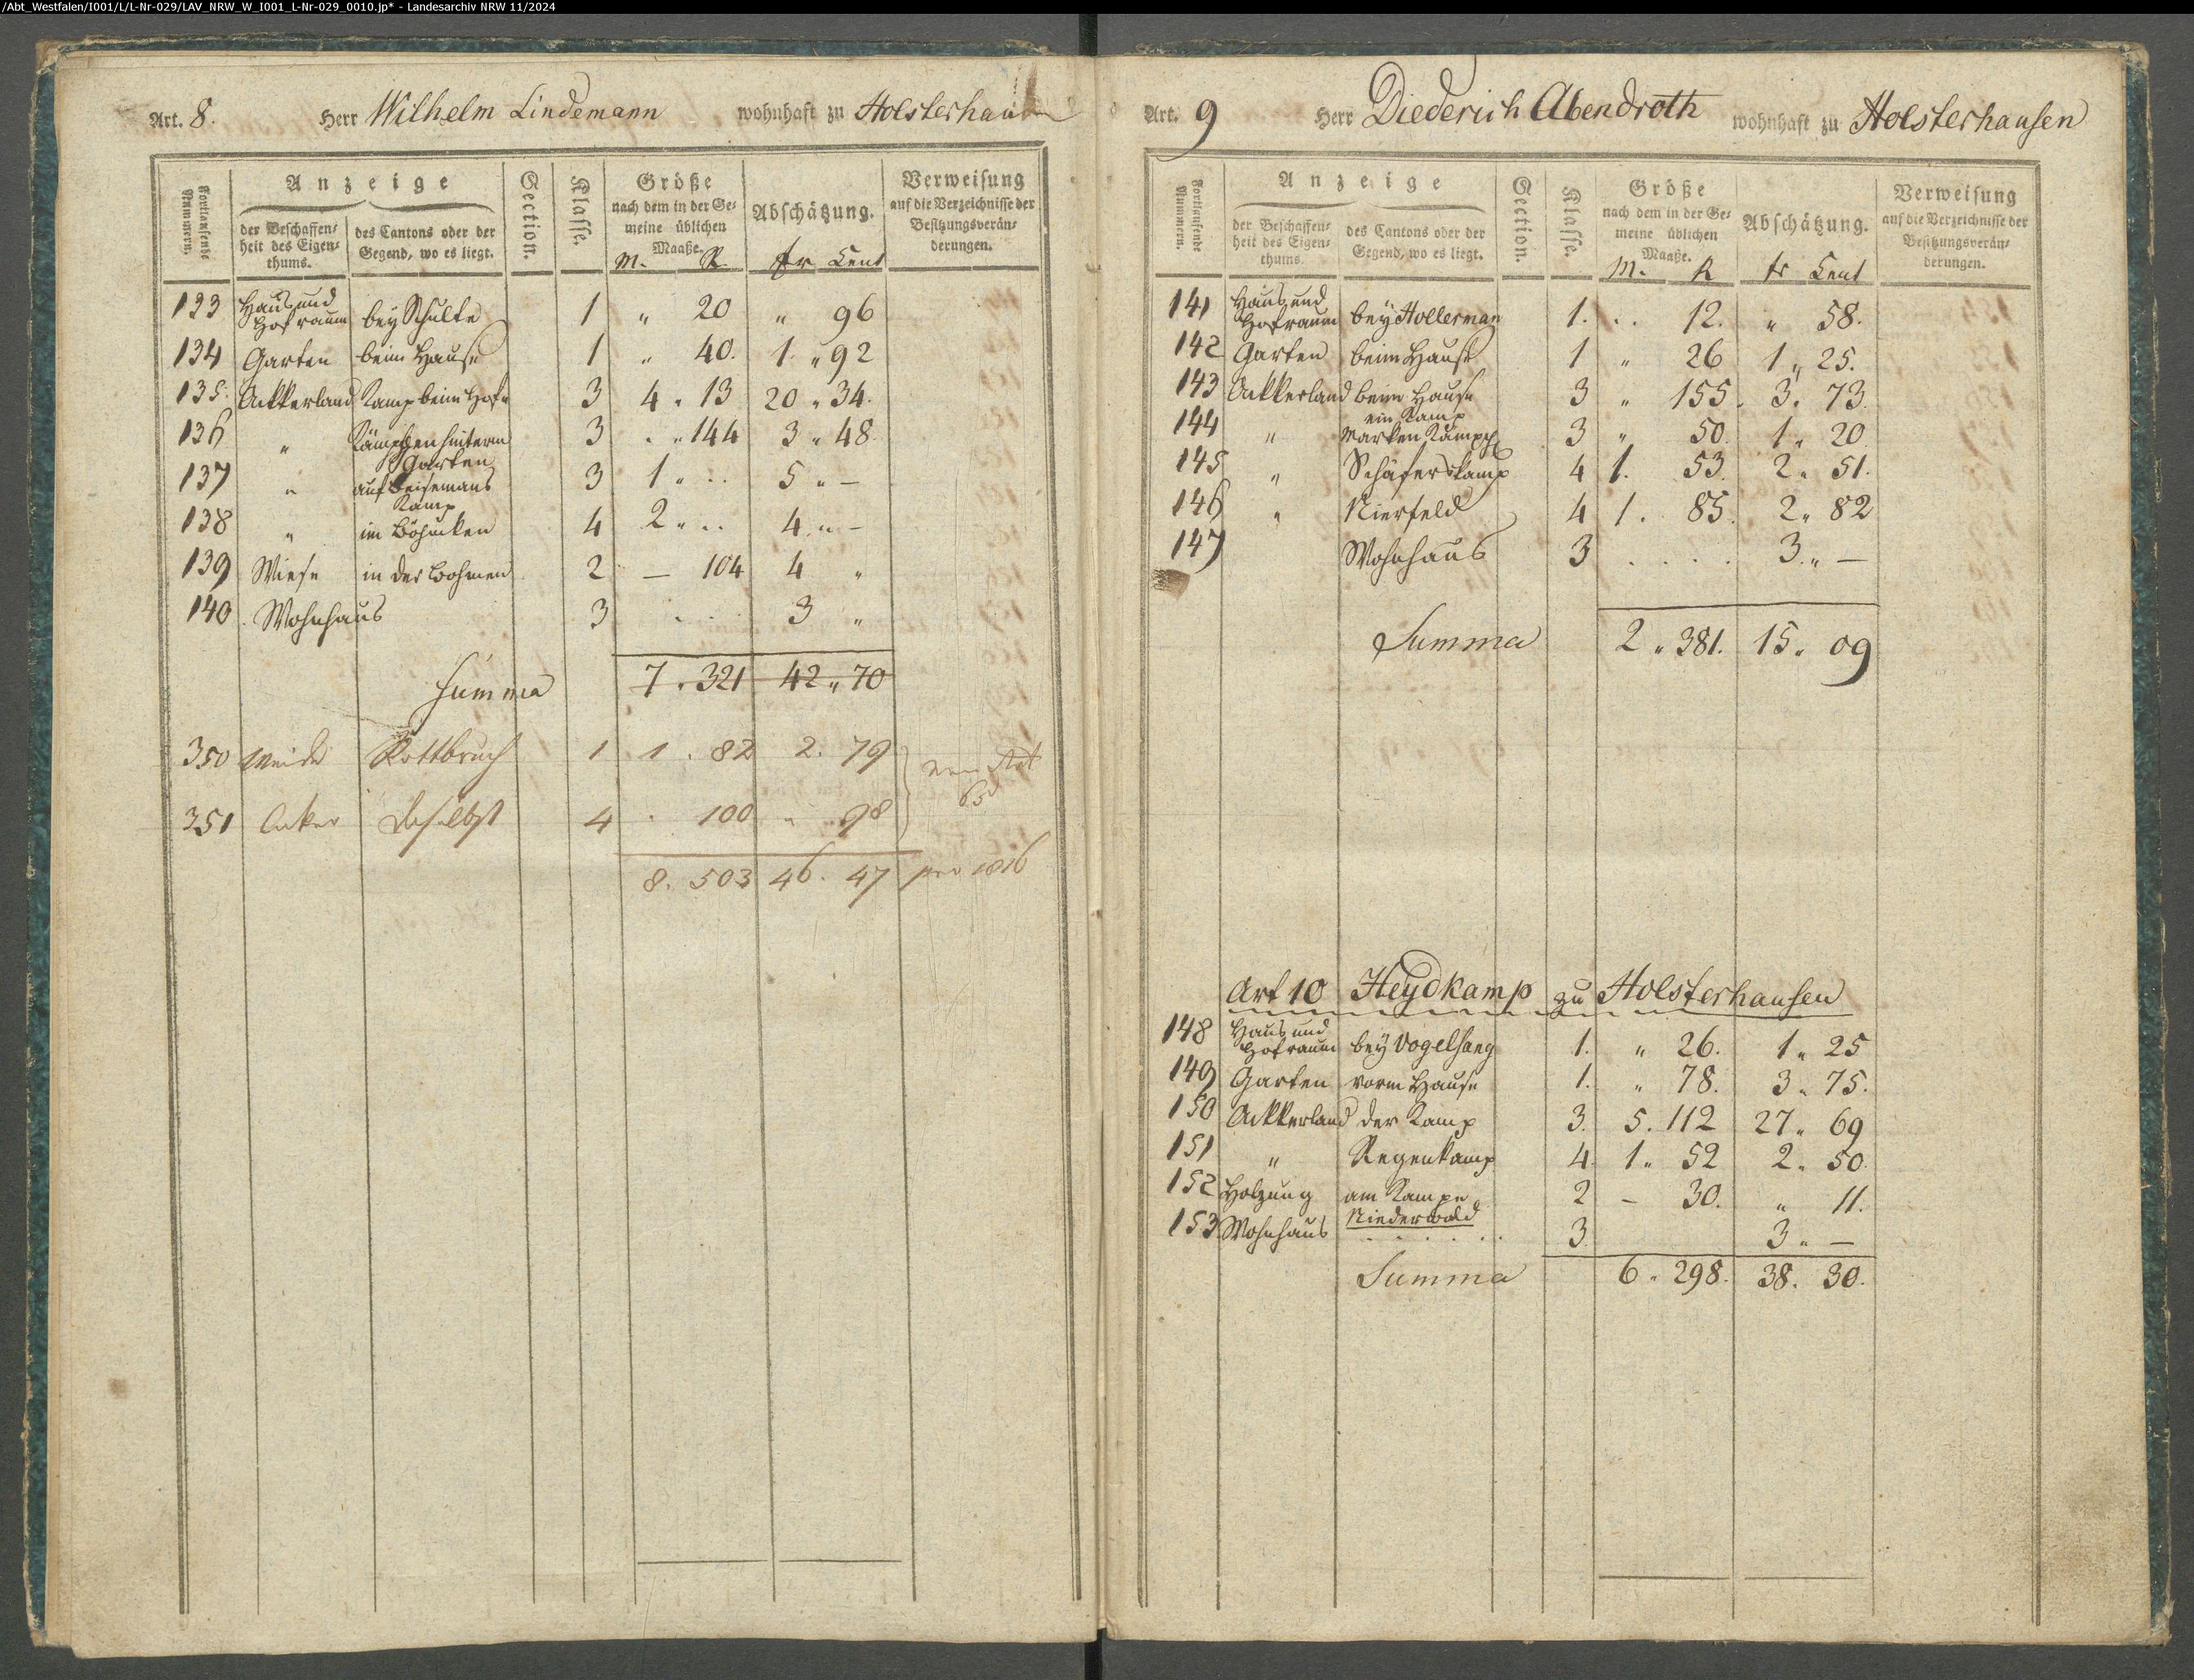 /Abt_Westfalen/I001/L/L-Nr-029/LAV_NRW_W_I001_L-Nr-029_0010.jp* - Landesarchiv NRW 11/2024
Art. 8. Herr Wilhelm Lindemann wohnhaft zu Holsterhausen
Fortlaufende Nummern.
Anzeige
der Beschaffenheit des Eigenthums.
des Cantons oder der Gegend, wo es liegt.
Section.
Klasse.
Größe
nach dem in der Gemeine üblichen Maaße.
M. R.
Abschätzung.
fr Cent
Verweisung
auf die Verzeichnisse der Besitzungsveränderungen.
123 Haus und Hofraum bey Schulte 1 " 20 " 96
134 Garten beim Hause 1 " 40. 1. " 92
135. Ackkerland Kamp beim Hofe 3 4 " 13 20 " 34.
136 " Kämpgen hinterm Garten 3 . " 144 3 " 48.
137 " auf Beisemans Kamp 3 1 " .. 5 " —
138 " im Böhmken 4 2 " .. 4 " —
139 Wiese in der Bohmen 2 — 104 4 "
140. Wohnhaus 3 . . 3 "
Summa 7 . 321 42 " 70
350 Weide Rottbruch 1 1 . 82 2. 79
351 Acker daselbst 4 . 100 " 98
vom Art 65
8. 503 46. 47 pro 1816
Art. 9 Herr Diederich Abendroth wohnhaft zu Holsterhausen
Fortlaufende Nummern.
Anzeige
der Beschaffenheit des Eigenthums.
des Cantons oder der Gegend, wo es liegt.
Section.
Klasse.
Größe
nach dem in der Gemeine üblichen Maaße.
M. R
Abschätzung.
fr Cent
Verweisung
auf die Verzeichnisse der Besitzungsveränderungen.
141 Haus und Hofraum bey Hollerman 1. . . 12. " 58.
142 Garten beim Hause 1 " 26 1 " 25.
143 Ackkerland beim Hause ein Kamp 3 " 155. 3. 73.
144 " Marken Kämpch 3 " 50. 1 " 20.
145 " Schäferskamp 4 1. 53. 2 " 51.
146 " Nierfeld 4 1. 85. 2 " 82
147 Wohnhaus 3 . . . . 3. " —
Summa 2 " 381. 15 " 09
Art 10 Heydkamp zu Holsterhausen
148 Haus und Hofraum bey Vogelsang 1. " 26. 1 " 25
149 Garten vorm Hause 1. " 78. 3 " 75.
150 Ackkerland der Kamp 3. 5. 112 27 " 69
151 " Regenkamp 4. 1 " 52 2 " 50.
152 Holzung am Kampe Niederwald 2 — 30. " 11.
153 Wohnhaus . . . . . . 3. 3 " —
Summa 6 " 298. 38. 30.